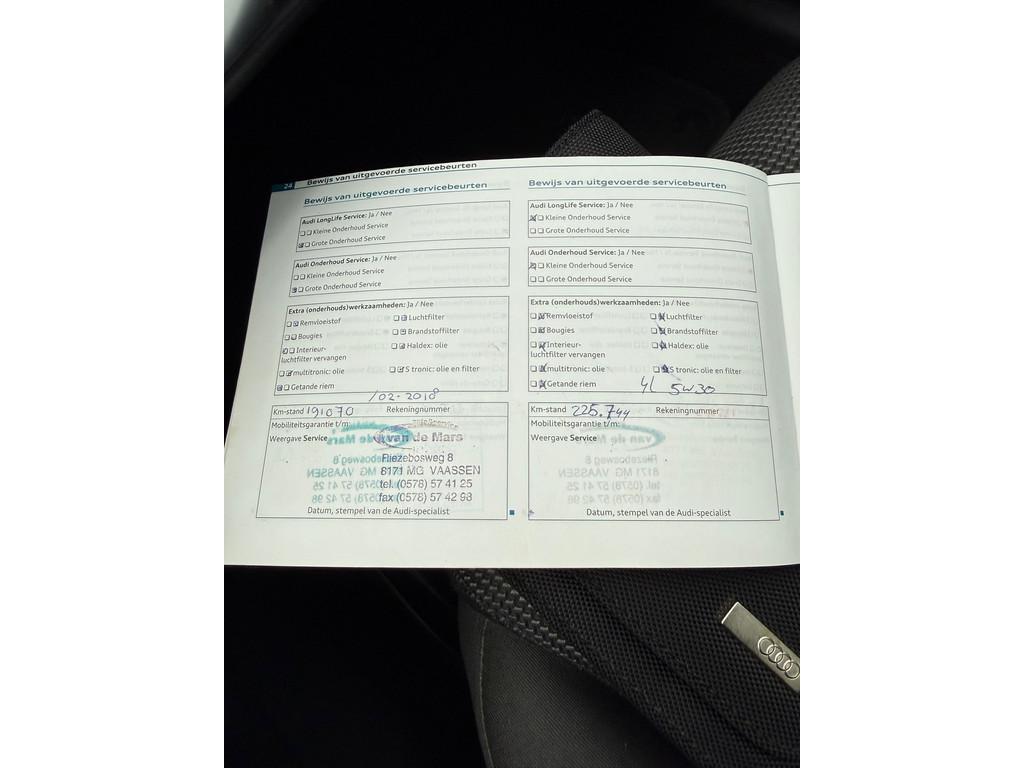 24 Bewijs van uitgevoerde servicebeurten
Bewijs van uitgevoerde servicebeurten
Audi LongLife Service: Ja / Nee
Kleine Onderhoud Service
Grote Onderhoud Service
Audi Onderhoud Service: Ja / Nee
Kleine Onderhoud Service
Grote Onderhoud Service
Extra (onderhouds)werkzaamheden: Ja / Nee
Remvloeistof Luchtfilter
Bougies Brandstoffilter
Interieur- Haldex: olie
luchtfilter vervangen
multitronic: olie S tronic: olie en filter
Getande riem
/02-2018
Km-stand 191070 Rekeningnummer
Mobiliteitsgarantie t/m:
Weergave Service
van de Mars
Fliezebosweg 8
8171 MG VAASSEN
tel. (0578) 57 41 25
fax (0578) 57 42 98
Datum, stempel van de Audi-specialist
Bewijs van uitgevoerde servicebeurten
Audi LongLife Service: Ja / Nee
Kleine Onderhoud Service
Grote Onderhoud Service
Audi Onderhoud Service: Ja / Nee
Kleine Onderhoud Service
Grote Onderhoud Service
Extra (onderhouds)werkzaamheden: Ja / Nee
Remvloeistof Luchtfilter
Bougies Brandstoffilter
Interieur- Haldex: olie
luchtfilter vervangen
multitronic: olie S tronic: olie en filter
Getande riem 4L 5W30
Km-stand 225.744 Rekeningnummer
Mobiliteitsgarantie t/m:
Weergave Service
Datum, stempel van de Audi-specialist